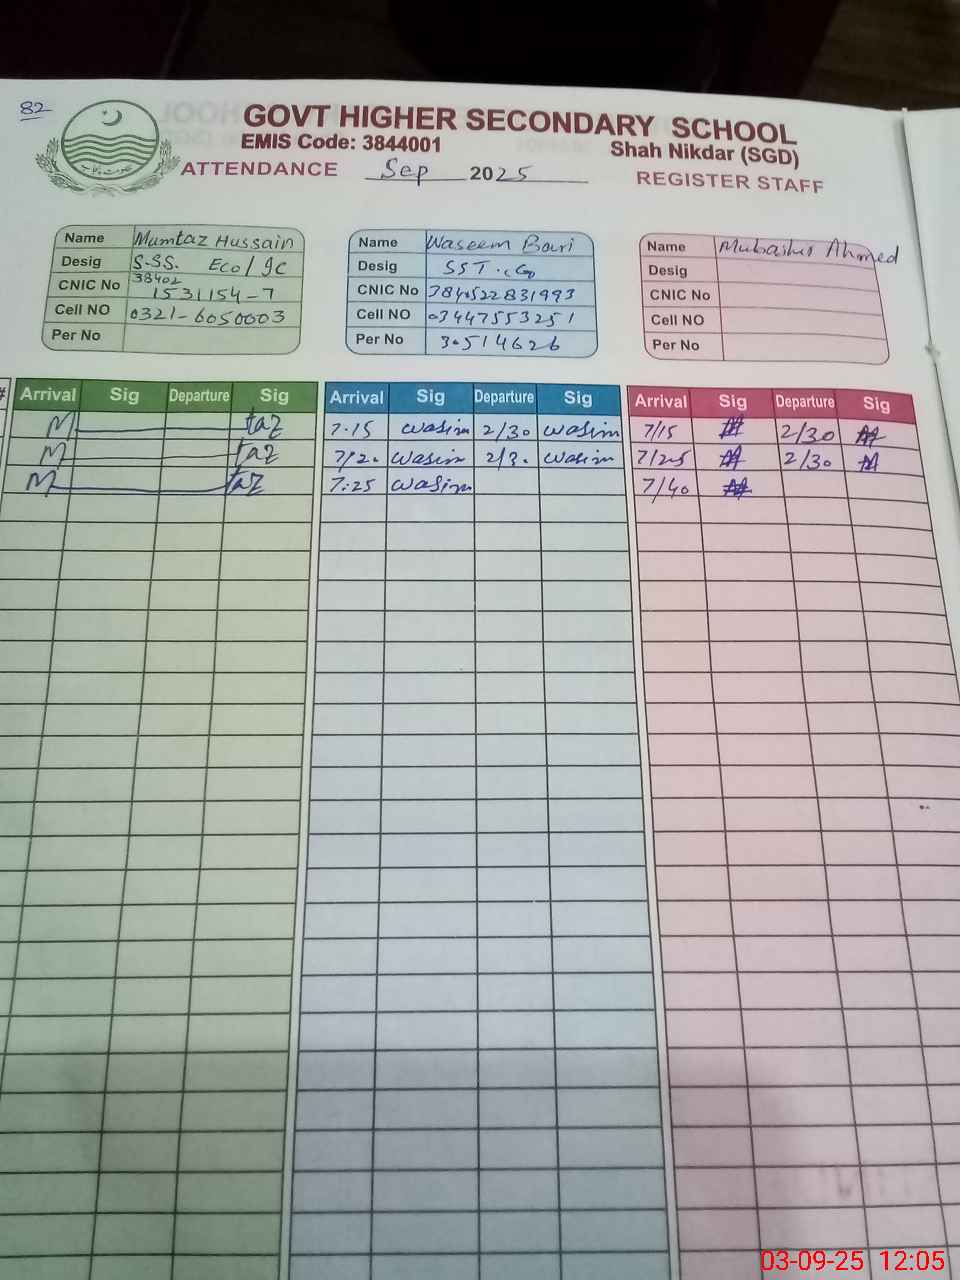 82
GOVT HIGHER SECONDARY SCHOOL
EMIS Code: 3844001
Shah Nikdar (SGD)
ATTENDANCE Sep 2025 REGISTER STAFF
Name Mumtaz Hussain
Desig S.SS. Eco/
CNIC No 38402
1531154-7
Cell NO 0321-6050003
Per No
Name Waseem Bari
Desig SST.
CNIC No 3840522831993
Cell NO 03447553251
Per No 30514626
Name Ahmed
Desig
CNIC No
Cell NO
Per No
# Arrival Sig Departure Sig Arrival Sig Departure Sig Arrival Sig Departure Sig
M taz 7.15 wasim 2/30 wasim 7/15 2/30
M taz 7/20 wasim 2/30 wasim 7/25 2/30
M taz 7:25 wasim 7/40
03-09-25 12:05